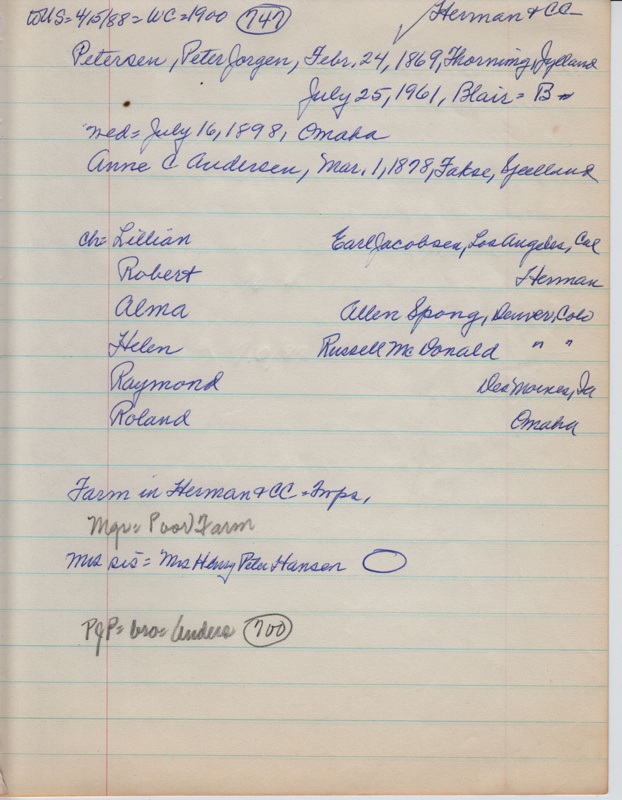 WUS = 4/15/88 = WC = 1900 (747) Herman & CC
Petersen, Peter Jorgen, Febr. 24, 1869, Thorning, Jylland
July 25, 1961, Blair = B
Med = July 16, 1898, Omaha
Anne C Andersen, Mar. 1, 1878, Fakse, Sjelland
Ch = Lillian Earl Jacobsen, Los Angeles, Cal
Robert Herman
Alma Allen Spong, Denver, Colo
Helen Russell McDonald " "
Raymond Des Moines, Ia
Roland Omaha
Farm in Herman & CC = Twps,
Mgr = Poor Farm
Mrs sis = Mrs Henry Peter Hansen
PJP = bro = Anders (700)